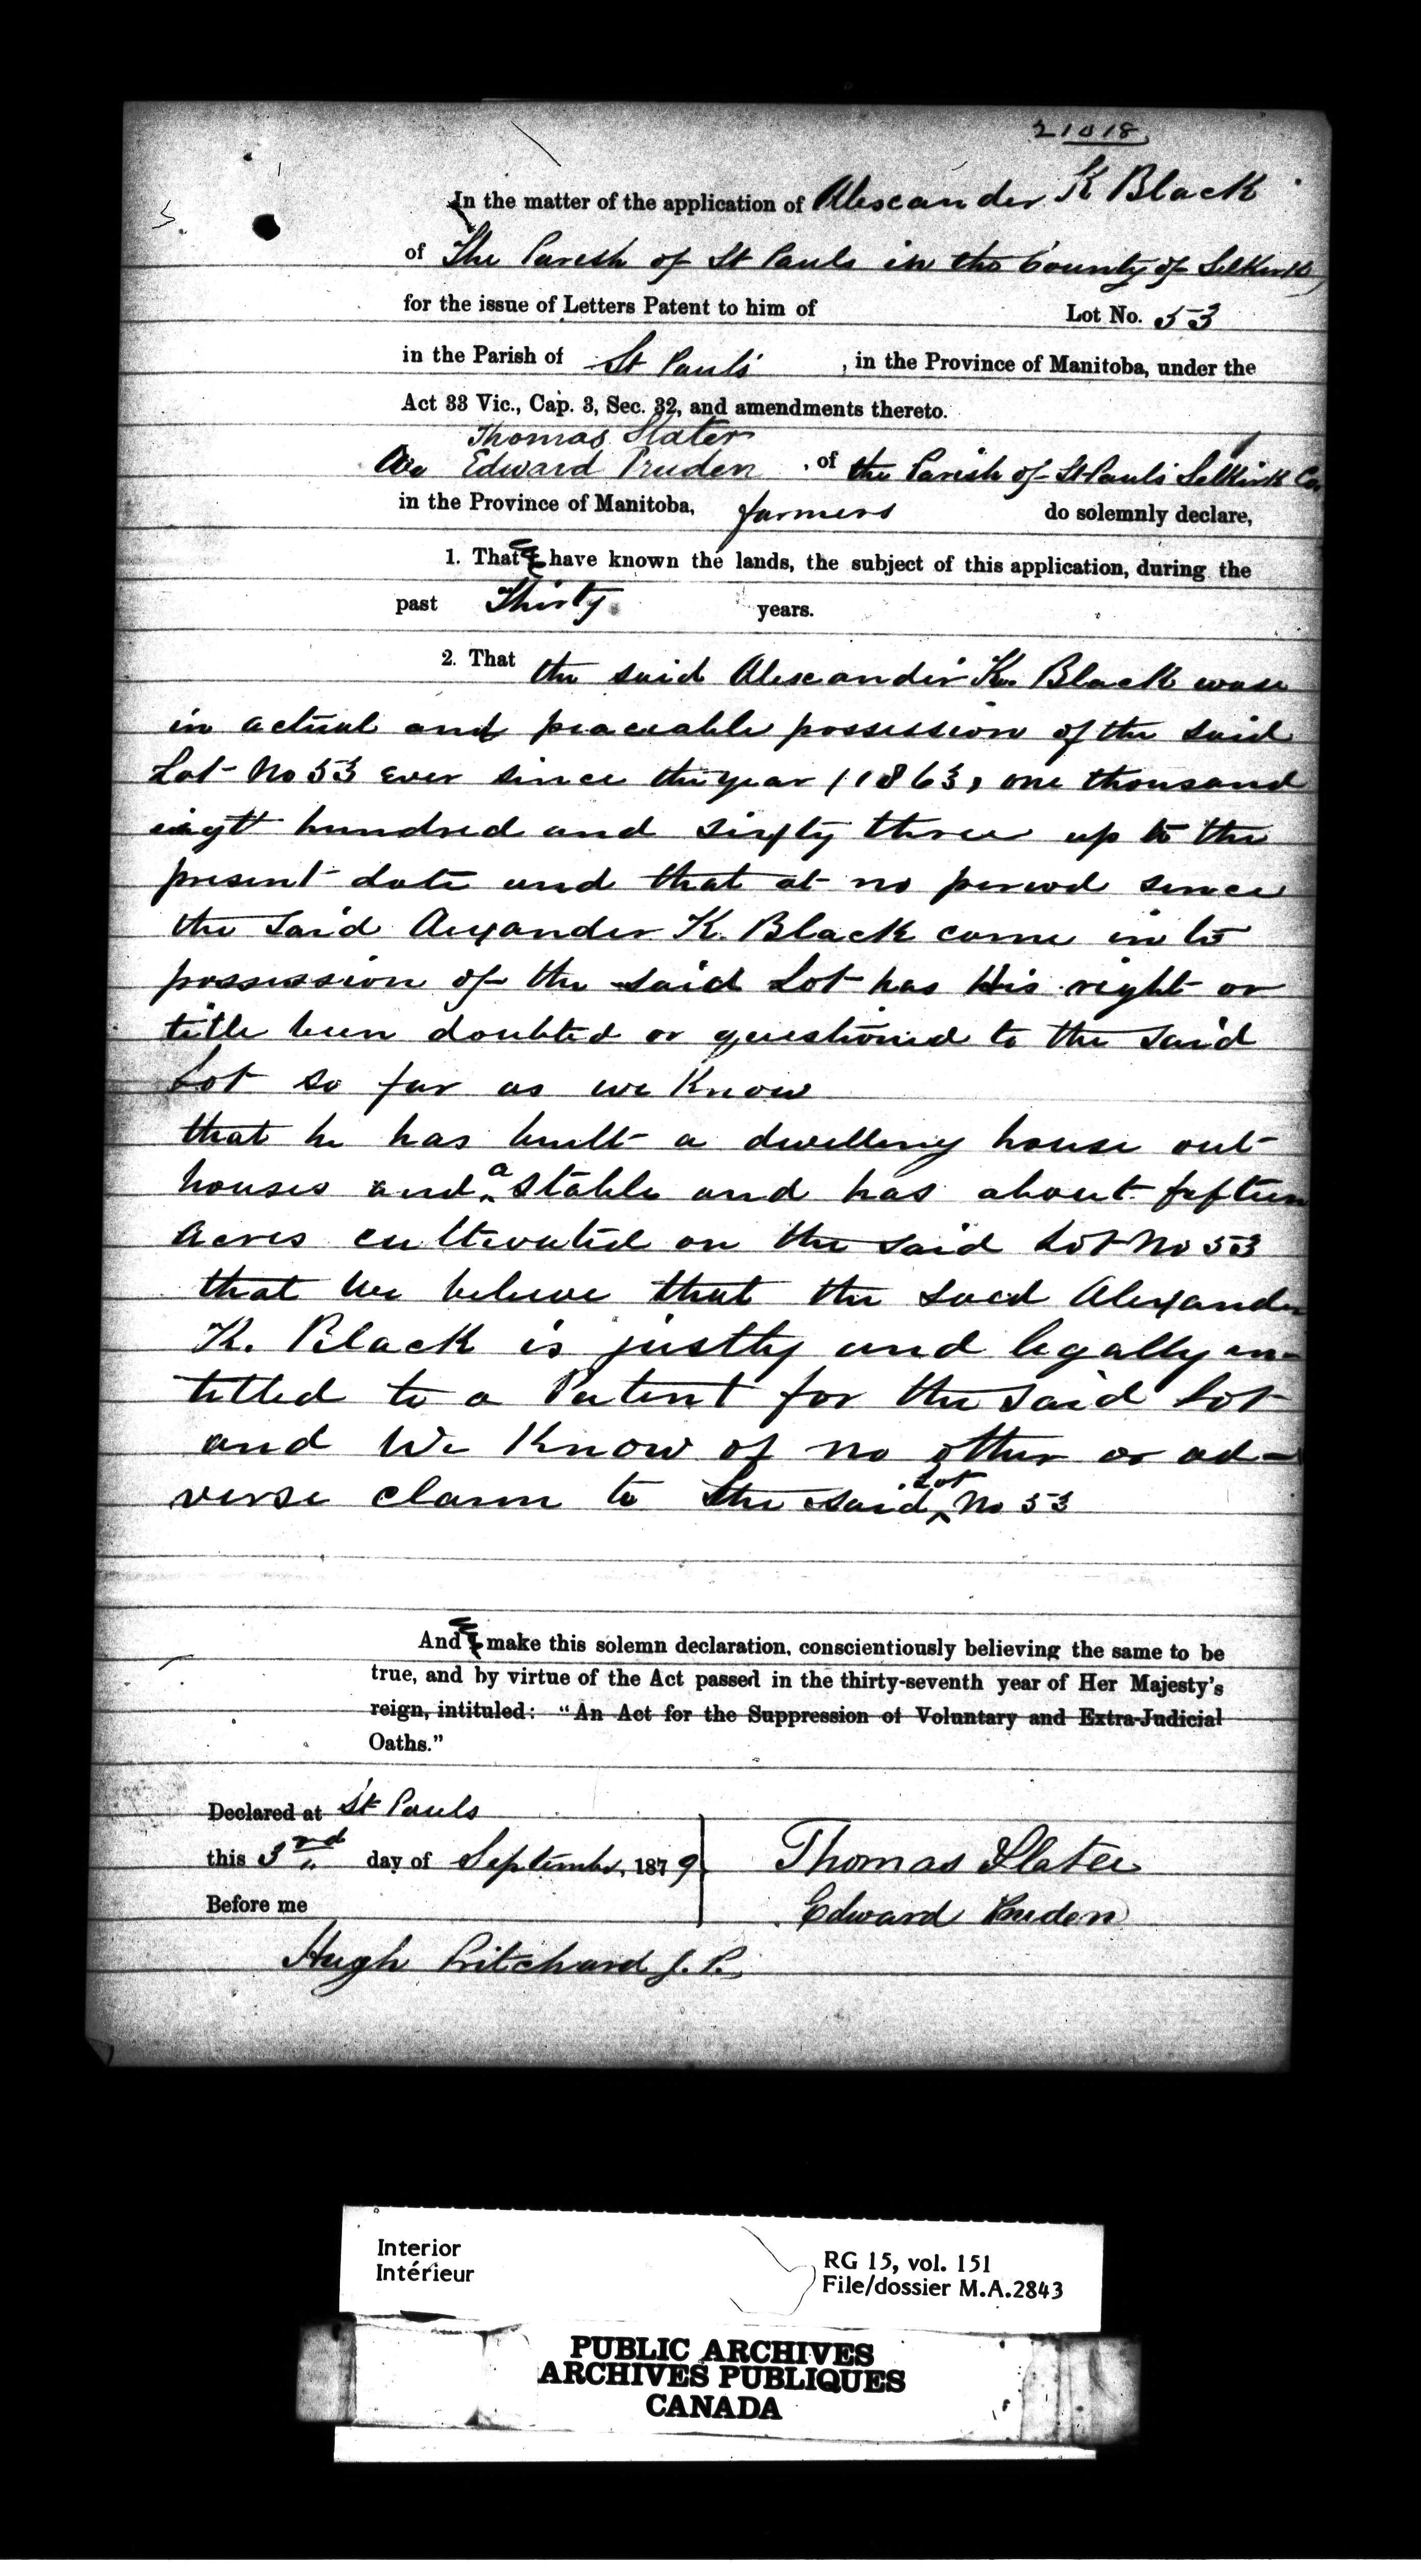 21018
In the matter of the application of Alexander K Black
of The Parish of St Pauls in the County of Selkirk,
for the issue of Letters Patent to him of Lot No. 53
in the Parish of St Pauls , in the Province of Manitoba, under the
Act 33 Vic., Cap. 3, Sec. 32, and amendments thereto.
Thomas Slater
We Edward Pruden , of the Parish of St Pauls Selkirk Co.
in the Province of Manitoba, farmers do solemnly declare,
1. That have known the lands, the subject of this application, during the
past Thirty years.
2. That the said Alexander K. Black was
in actual and peaceable possession of the said
Lot No 53 ever since the year (1863, one thousand
eight hundred and sixty three up to the
present date and that at no period since
the said Alexander K. Black came in to
possession of the said Lot has his right or
title been doubted or questioned to the said
Lot so far as we Know
that he has built a dwelling house out
houses and a stable and has about fifteen
acres cultivated on the said Lot No 53
that We believe that the said Alexander
K. Black is justly and legally en-
titled to a Patent for the said Lot
and We Know of no other or ad-
verse claim to the said Lot No 53
And make this solemn declaration, conscientiously believing the same to be
true, and by virtue of the Act passed in the thirty-seventh year of Her Majesty's
reign, intituled: "An Act for the Suppression of Voluntary and Extra-Judicial
Oaths."
Declared at St Pauls
this 3rd day of September, 1879 Thomas Slater
Before me Edward Pruden
Hugh Pritchard J. P.
Interior
Intérieur
RG 15, vol. 151
File/dossier M.A.2843
PUBLIC ARCHIVES
ARCHIVES PUBLIQUES
CANADA